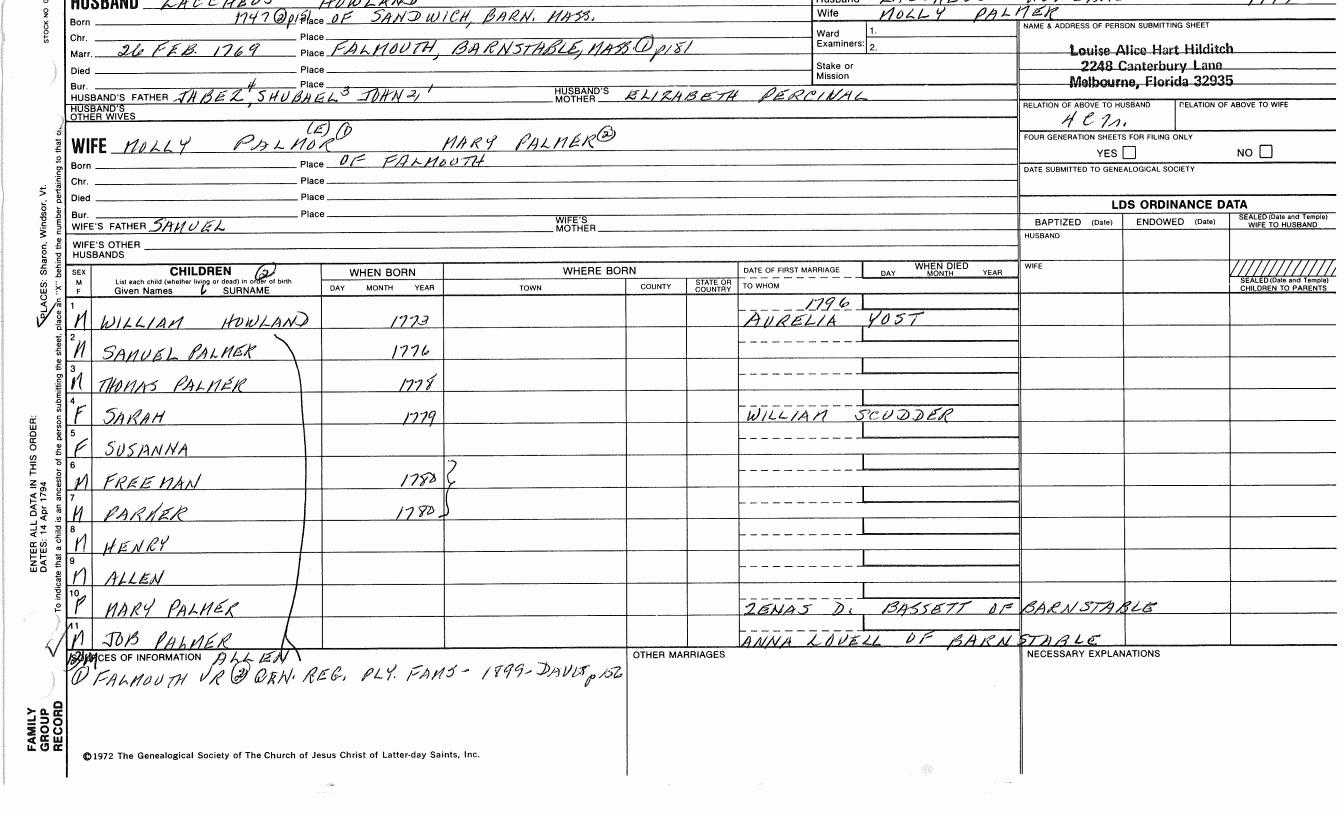 HUSBAND ZACCHEUS HOWLAND
Wife MOLLY PALMER
Born 1747 ② p152 Place OF SANDWICH, BARN. MASS.
Chr. Place
Marr. 26 FEB. 1769 Place FALMOUTH, BARNSTABLE, MASS ① p181
Died Place
Bur. Place
HUSBAND'S FATHER JABEZ 4, SHUBAEL 3 JOHN 2, 1 HUSBAND'S MOTHER ELIZABETH PERCINAL
HUSBAND'S OTHER WIVES
Ward Examiners: 1.
2.
Stake or Mission
NAME & ADDRESS OF PERSON SUBMITTING SHEET
Louise Alice Hart Hilditch
2248 Canterbury Lane
Melbourne, Florida 32935
RELATION OF ABOVE TO HUSBAND RELATION OF ABOVE TO WIFE
FOUR GENERATION SHEETS FOR FILING ONLY
YES NO
DATE SUBMITTED TO GENEALOGICAL SOCIETY
(E) ①
WIFE MOLLY PALMOR MARY PALMER ②
Born Place OF FALMOUTH
Chr. Place
Died Place
Bur. Place
WIFE'S FATHER SAMUEL WIFE'S MOTHER
WIFE'S OTHER HUSBANDS
LDS ORDINANCE DATA
BAPTIZED (Date) ENDOWED (Date) SEALED (Date and Temple) WIFE TO HUSBAND
HUSBAND
WIFE
SEALED (Date and Temple) CHILDREN TO PARENTS
SEX M F CHILDREN ② WHEN BORN WHERE BORN DATE OF FIRST MARRIAGE WHEN DIED
List each child (whether living or dead) in order of birth
Given Names SURNAME DAY MONTH YEAR TOWN COUNTY STATE OR COUNTRY TO WHOM DAY MONTH YEAR
1 M WILLIAM HOWLAND 1773 1796 AURELIA YOST
2 M SAMUEL PALMER 1776
3 M THOMAS PALMER 1778
4 F SARAH 1779 WILLIAM SCUDDER
5 F SUSANNA
6 M FREEMAN 1780
7 M PARKER 1780
8 M HENRY
9 M ALLEN
10 F MARY PALMER ZENAS D. BASSETT OF BARNSTABLE
11 M JOB PALMER ANNA LOVELL OF BARNSTABLE
SOURCES OF INFORMATION ALLEN
① FALMOUTH VR ② GEN. REG. PLY. FAMS - 1899 - DAVIS p152
OTHER MARRIAGES
NECESSARY EXPLANATIONS
©1972 The Genealogical Society of The Church of Jesus Christ of Latter-day Saints, Inc.
FAMILY GROUP RECORD
ENTER ALL DATA IN THIS ORDER:
DATES: 14 Apr 1794
PLACES: Sharon, Windsor, Vt.
To indicate that a child is an ancestor of the person submitting the sheet, place an "X" behind the number pertaining to that
STOCK NO.